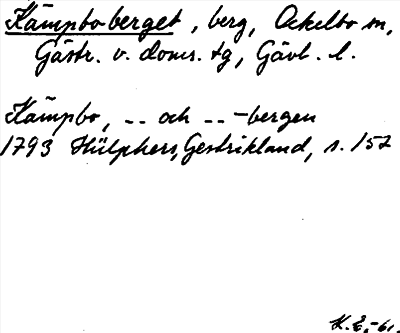 Kämpbo-berget, berg, Ockelbo sn,
Gästr. v. doms. tg, Gävl. l.
Kämpbo, -- och -- -bergen
1793 Hülphers, Gestrikland, s. 157
K.E.-61.